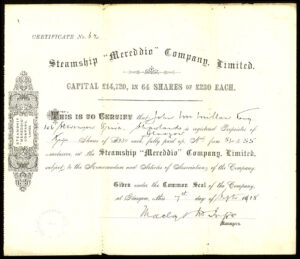 CERTIFICATE No. 62
Steamship "Mereddio" Company, Limited.
CAPITAL £14,720, IN 64 SHARES OF £230 EACH.
THIS IS TO CERTIFY that John McMillan Esq
is registered Proprietor of
Shares of £230 each fully paid up, No.
inclusive, in the Steamship "Mereddio" Company, Limited,
subject to the Memorandum and Articles of Association of the Company.
Given under the Common Seal of the Company,
at Glasgow, this 7th day of Sept 1918
Manager.